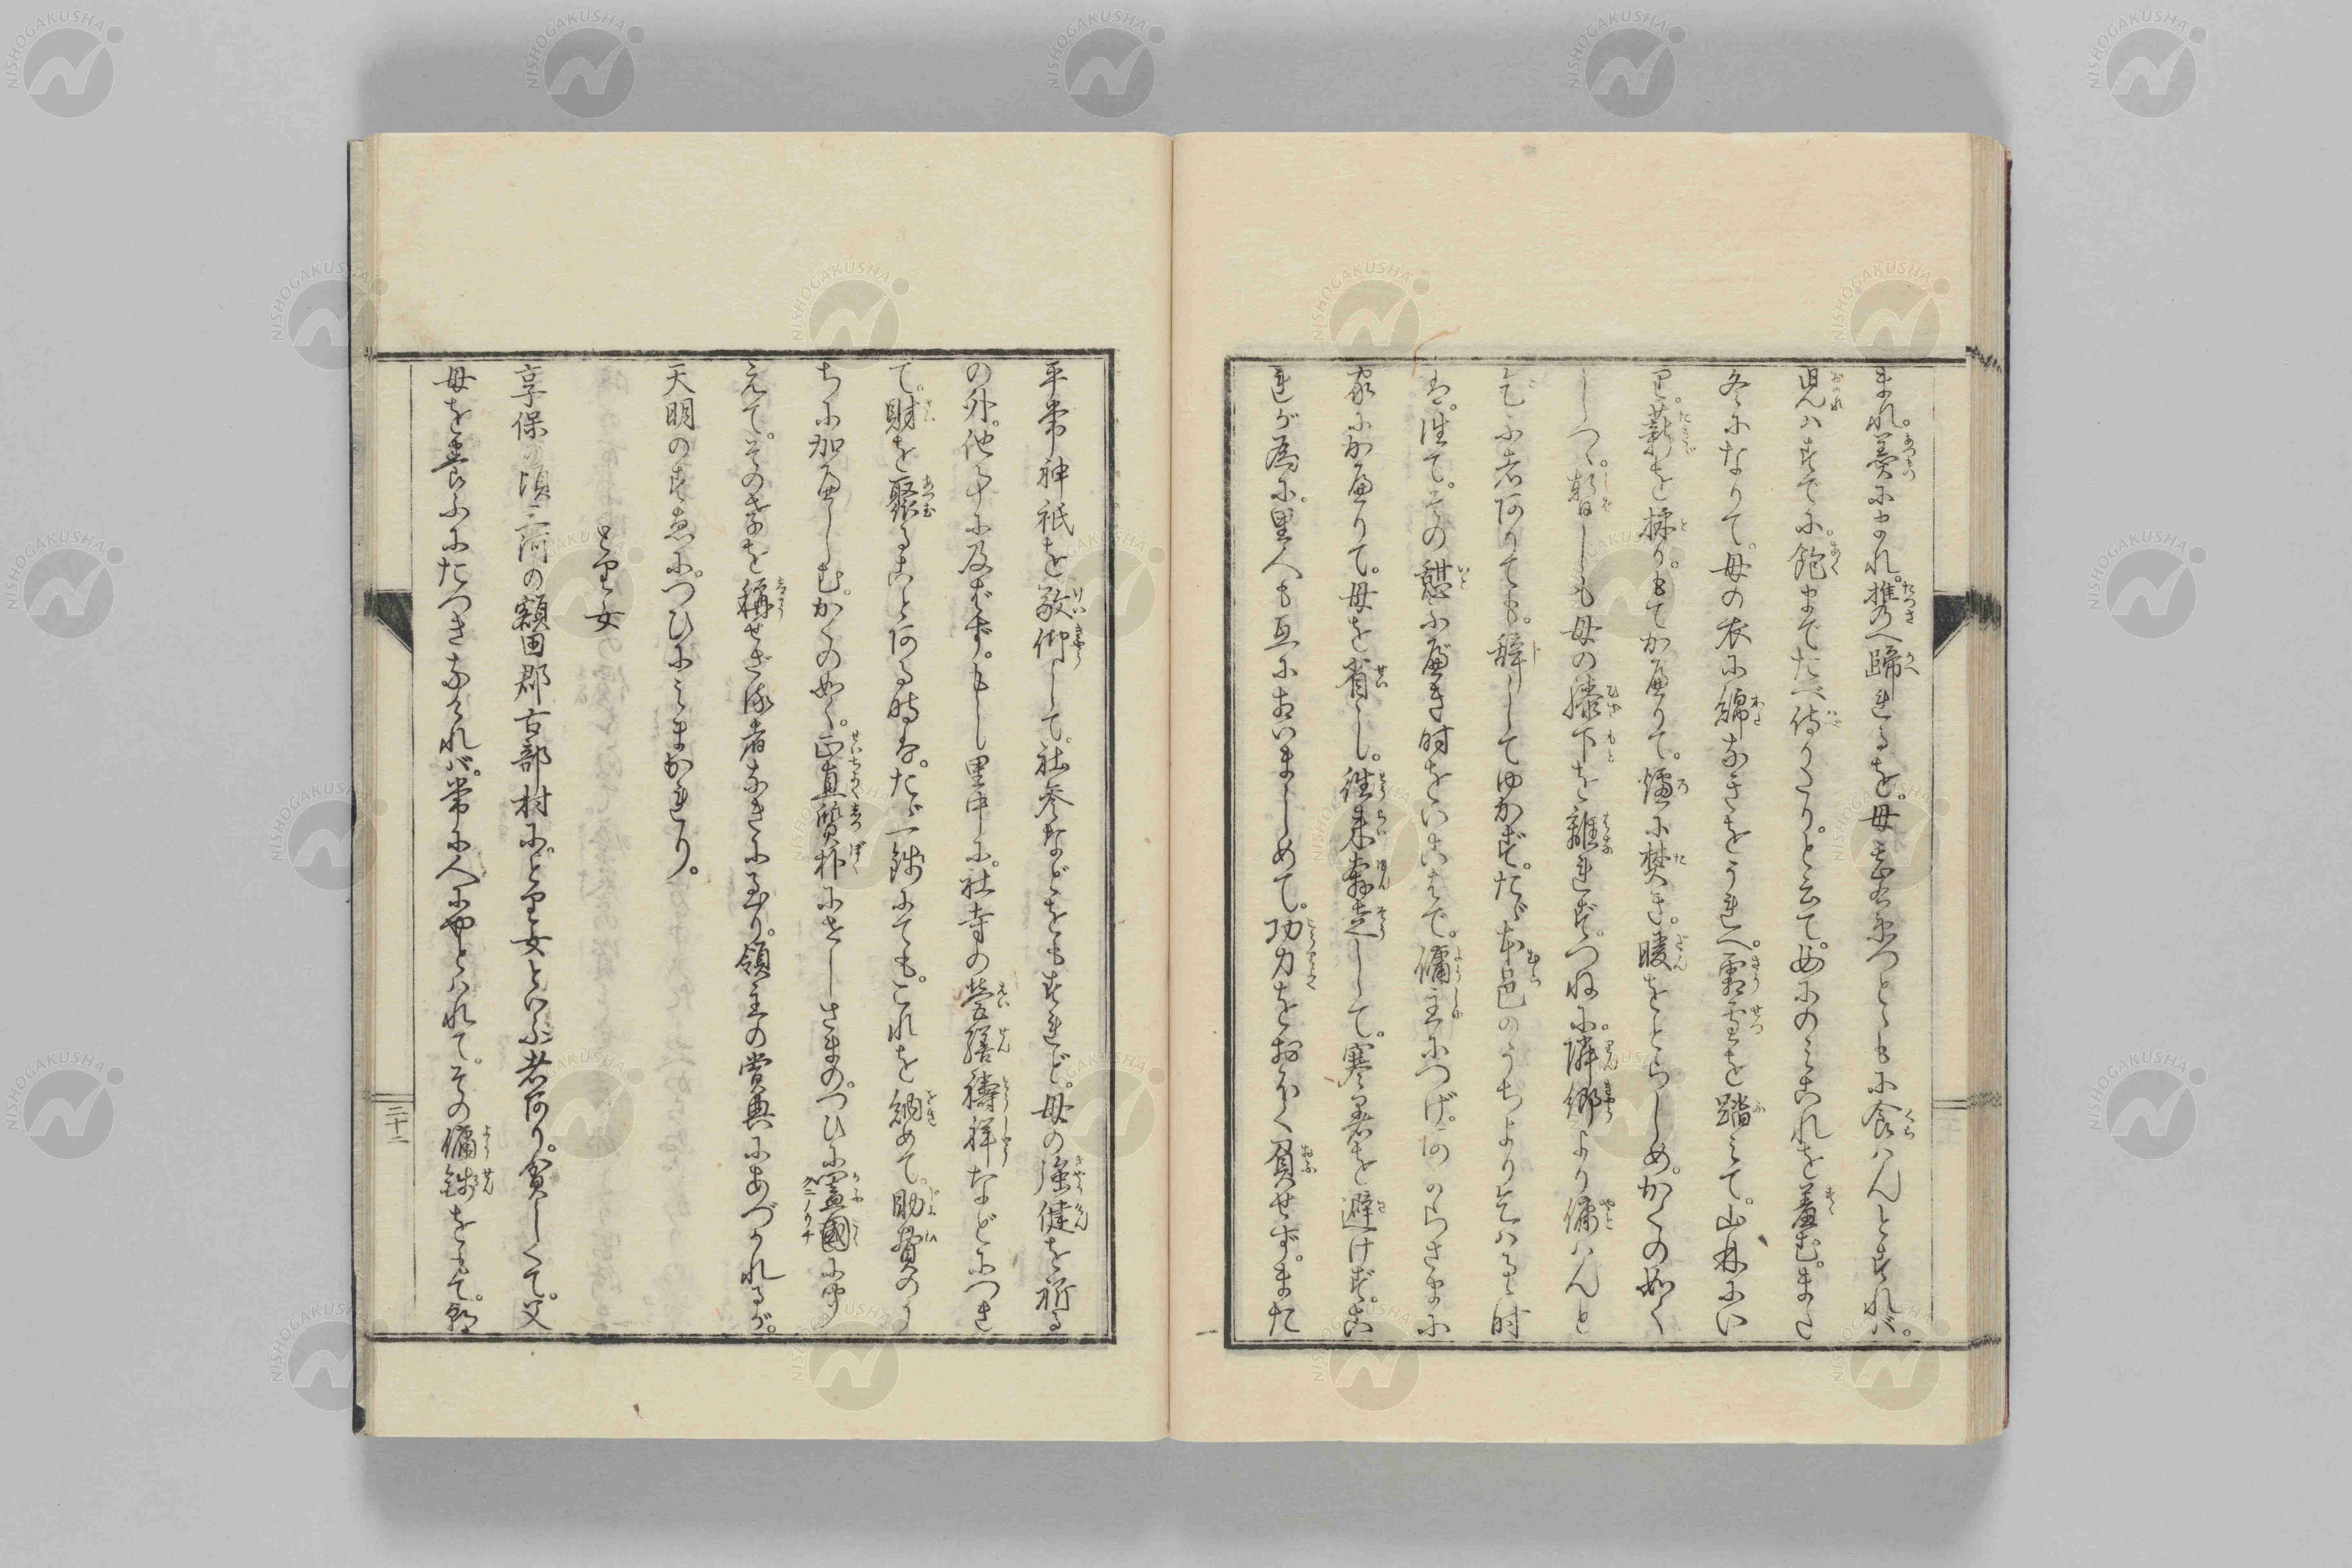 まれ。羹にまれ。携へ歸れるを。母云合ふつとゝもに食はんとすれバ。
児ハすでに。飽までたべ侍りたりと云て。母にのみこれを羞む。また
冬になりて。母の衣に綿なきをうれへ。霜雪を踏みて。山林にい
り。薪を採り。もてかへりて。爐に焚き。暖をとらしめ。かくの如く
しつゝ。暫しも母の膝下を離れず。つねに。隣郷より傭はんと
乞ふ者ありても。辞してゆかず。たゞ本邑のうちより乞はるゝ時
は。往て。その
家にかへりて。母を省し。徃来奔走して。寒暑を避けず。こ
れが為に。里人も互にあいましめて。功力をおほく負せず。また
平常神祇を敬仰して。社参などをもすれど。母の強健を祈る
の外。他事に及ばず。もし里中に。社寺の營繕禱祥などにつき
て。財を聚ることある時は。たゞ一錢にても。これを納めて。助費のう
ちに加へしむ。かくの如く。正直質朴にせしさまの。つひに闔國に聞
えて。その孝を稱せざる者なきに至り。領主の賞典にあづかれるが。
天明のすゑに。つひにみまかれり。
とり女
享保の頃三河の額田郡古部村に。とり女といふ者あり。貧しくて。父
母を養ふにたつきなければ。常に人にやとはれて。その傭錢をもて。朝
三十二